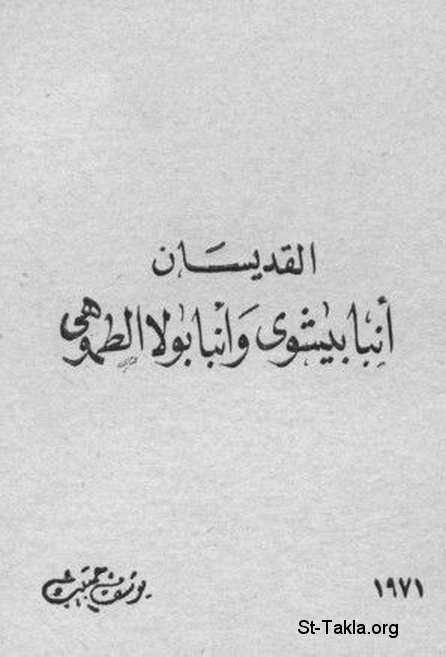 القديسان
أنبا بيشوى وَأنبا بولا الطموهى
١٩٧١
يوسف حبيب
St-Takla.org